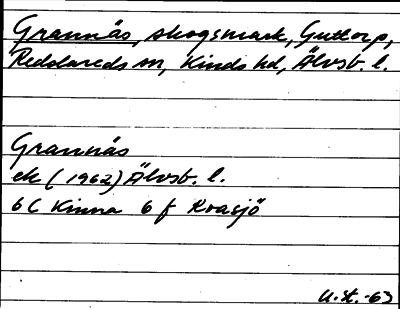 Grannäs, skogsmark, Guttorp,
Redslareds sn, Kinds hd, Älvsb. l.
Grannäs
ek (1962) Älvsb. l.
6C Kinna 6 f Roasjö
U.St. -63